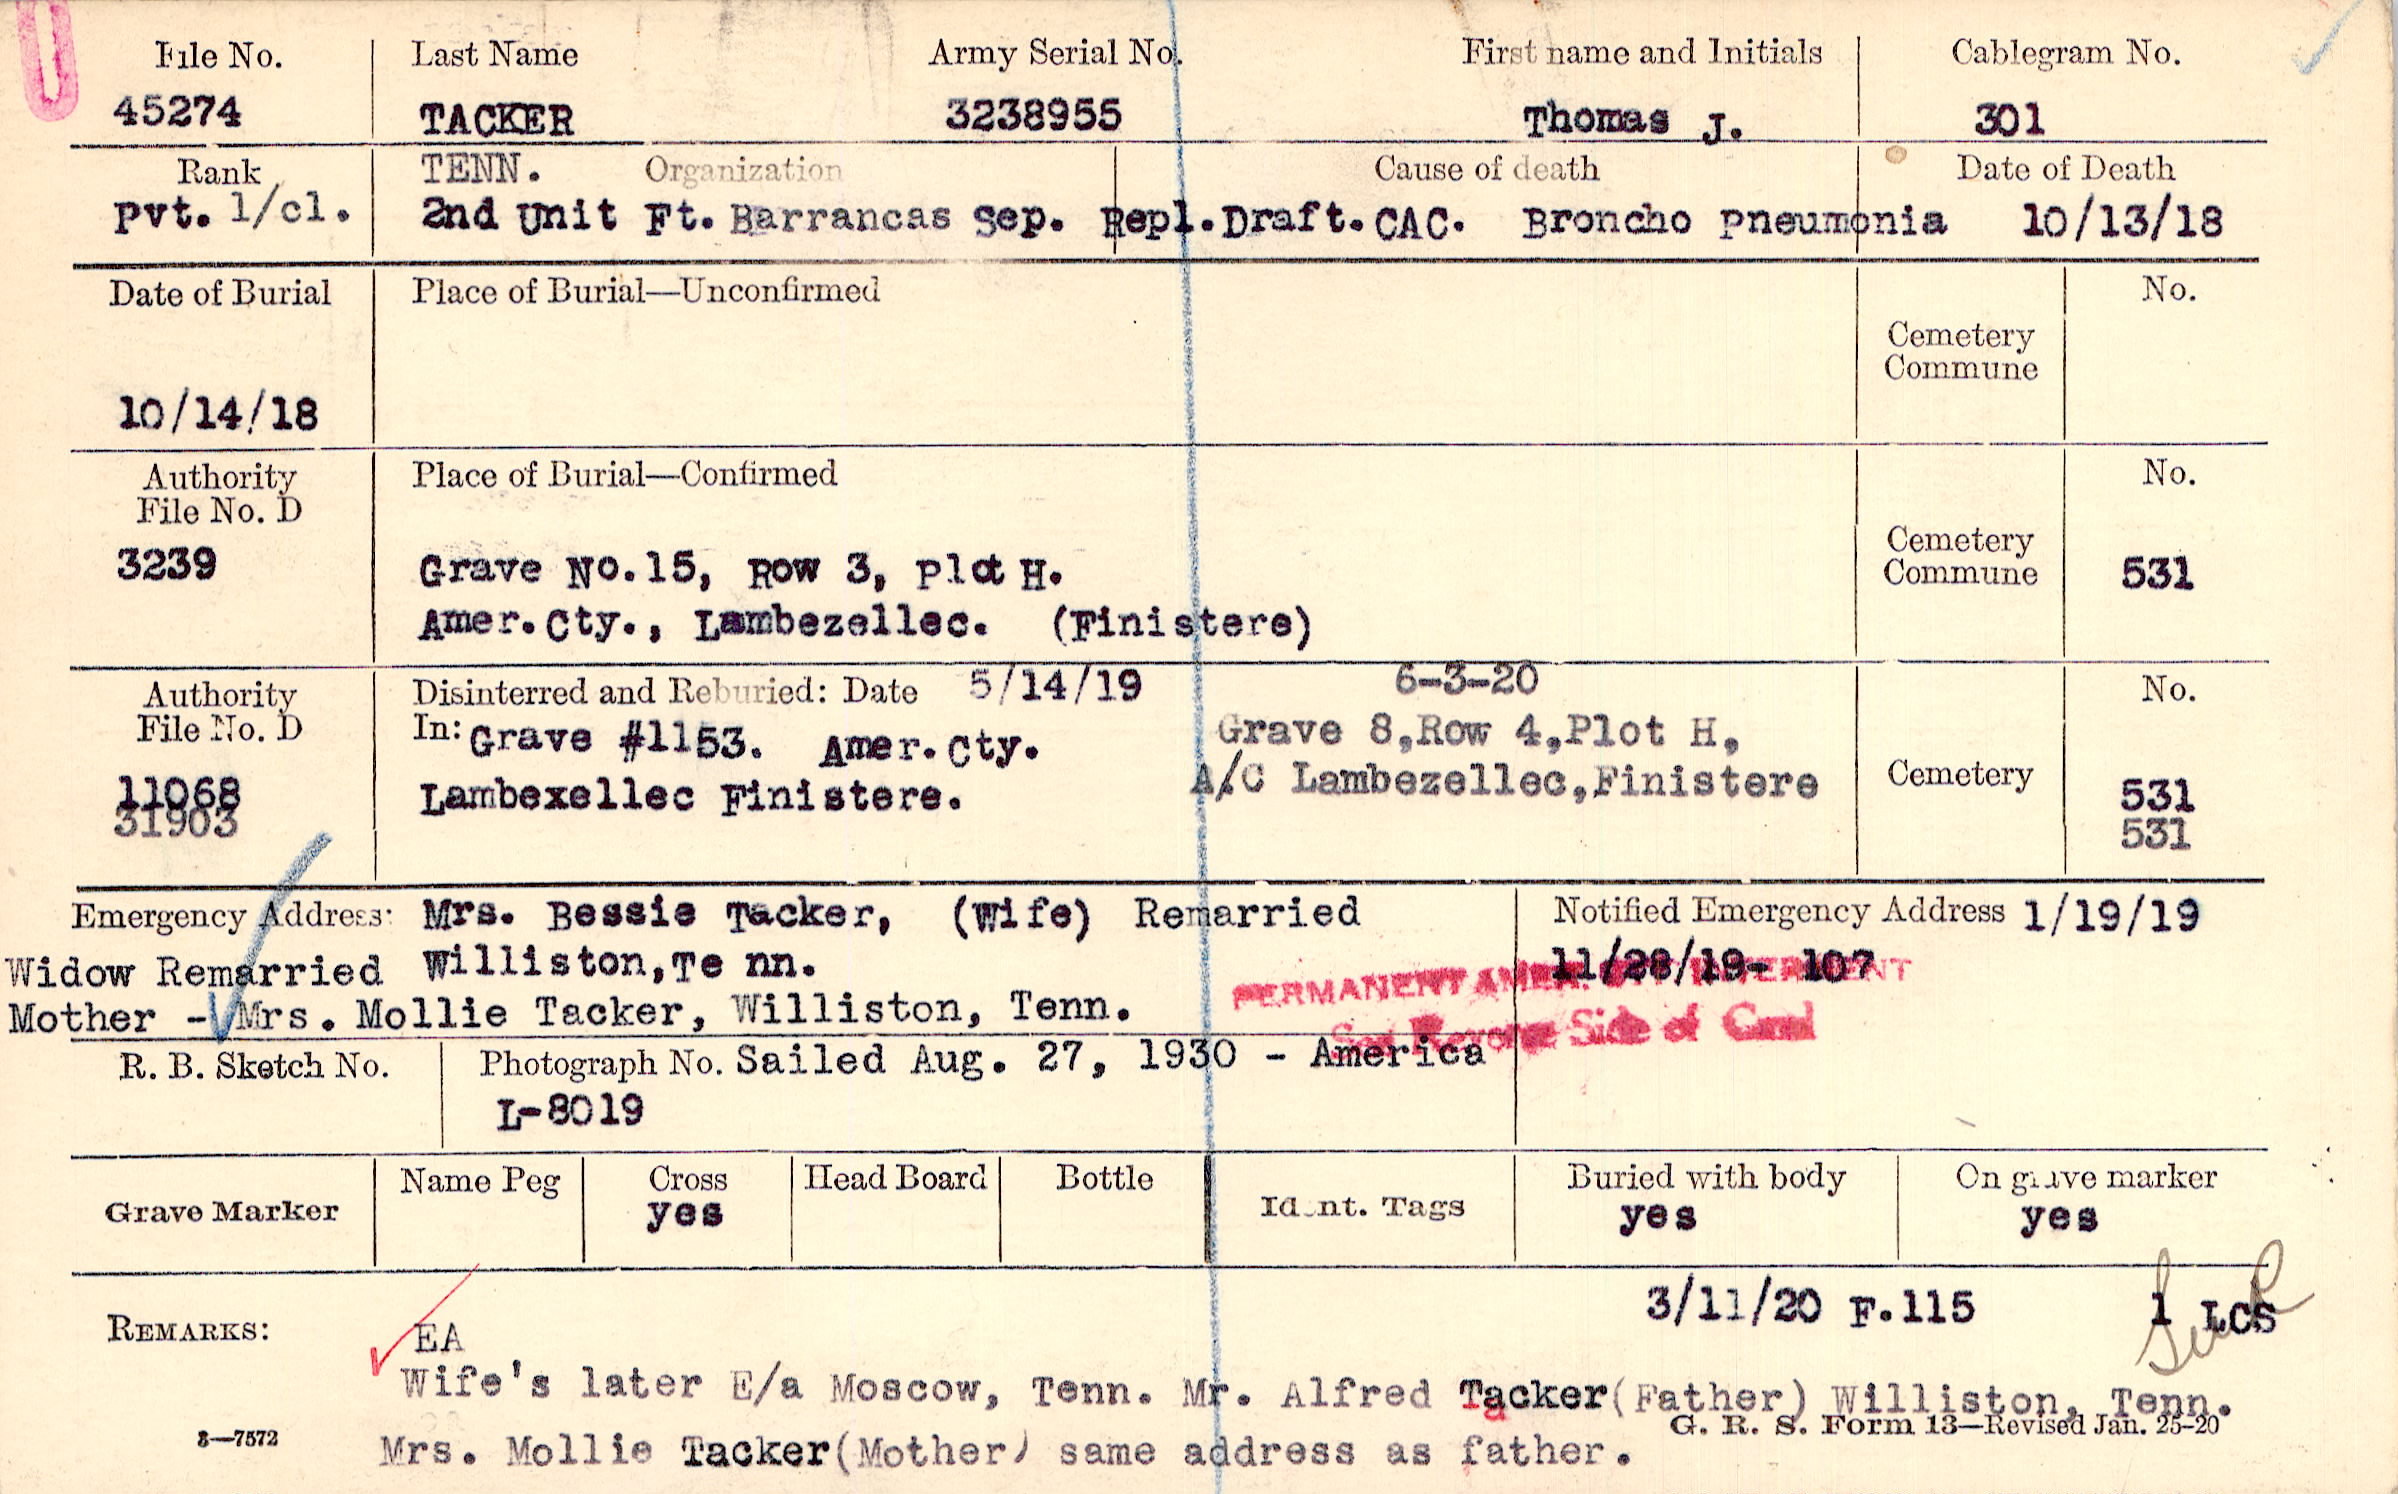 File No. Last Name Army Serial No. First name and Initials Cablegram No.
45274 TACKER 3238955 Thomas J. 301
Rank TENN. Organization Cause of death Date of Death
Pvt. 1/cl. 2nd Unit Ft. Barrancas Sep. Repl.Draft.CAC. Broncho Pneumonia 10/13/18
Date of Burial Place of Burial—Unconfirmed No.
Cemetery
Commune
10/14/18
Authority Place of Burial—Confirmed No.
File No. D
3239 Grave No.15, Row 3, Plot H. Cemetery
Commune 531
Amer.Cty., Lambezellec. (Finistere)
Authority Disinterred and Reburied: Date 5/14/19 6-3-20 No.
File No. D In: Grave #1153. Amer.Cty. Grave 8,Row 4,Plot H,
11068 Lambexellec Finistere. A/C Lambezellec,Finistere Cemetery 531
31903 531
Emergency Address: Mrs. Bessie Tacker, (Wife) Remarried Notified Emergency Address 1/19/19
Widow Remarried Williston,Te nn. 11/28/19- 107
PERMANENT AMER.
Mother - Mrs. Mollie Tacker, Williston, Tenn.
See Reverse Side of Card
R. B. Sketch No. Photograph No. Sailed Aug. 27, 1930 - America
L-8019
Grave Marker Name Peg Cross Head Board Bottle Ident. Tags Buried with body On grave marker
yes yes yes
3/11/20 F.115 1 LCS
REMARKS: EA
Wife's later E/a Moscow, Tenn. Mr. Alfred Tacker(Father) Williston, Tenn.
3—7572 G. R. S. Form 13—Revised Jan. 25-20
Mrs. Mollie Tacker(Mother) same address as father.